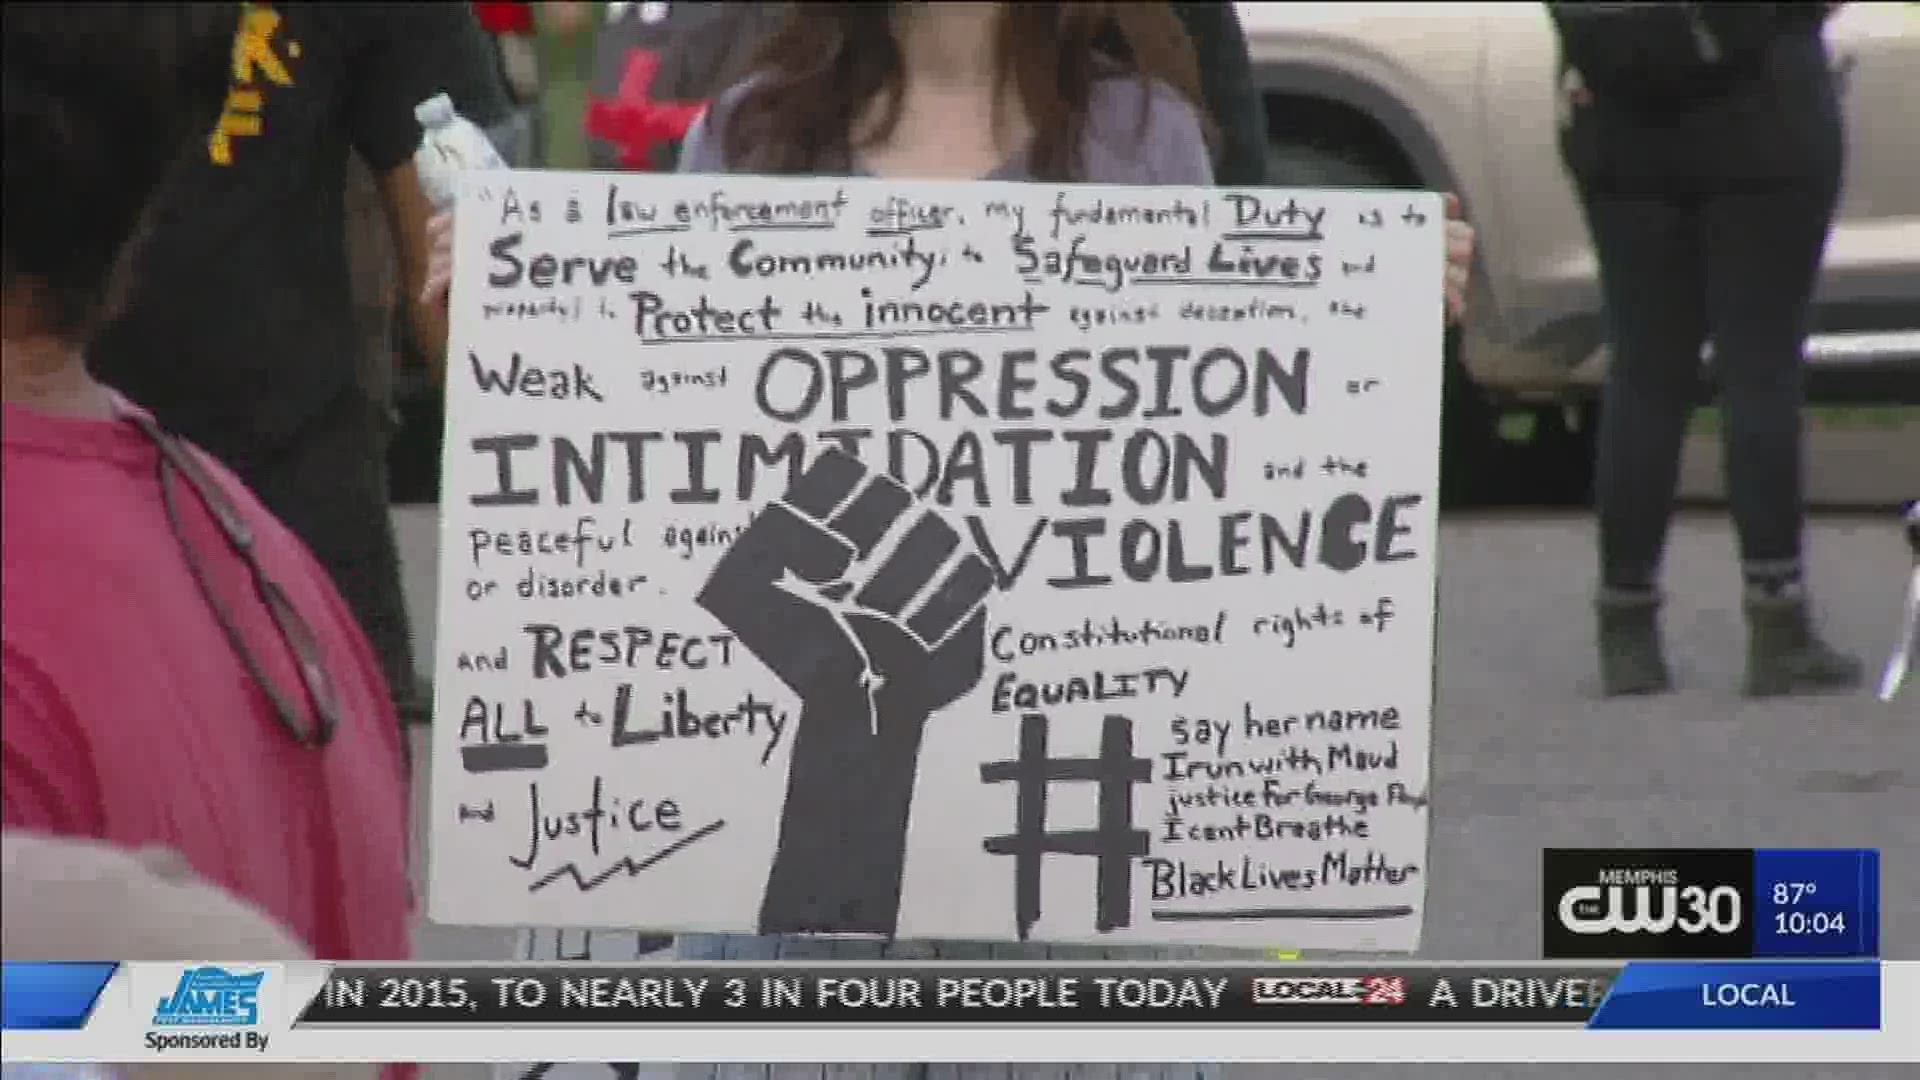 "As a law enforcement officer, my fundamental Duty is to
Serve the Community; to Safeguard Lives and
to Protect the innocent against deception, the
Weak against OPPRESSION or
INTIMIDATION and the
peaceful against VIOLENCE
or disorder.
and RESPECT Constitutional rights of
ALL to Liberty EQUALITY
and Justice
# say her name
I run with Maud
justice for George Floyd
I cant Breathe
Black Lives Matter
MEMPHIS
THE CW30
87°
10:04
JAMES
Sponsored By
IN 2015, TO NEARLY 3 IN FOUR PEOPLE TODAY LOCAL 24 A DRIVE
LOCAL